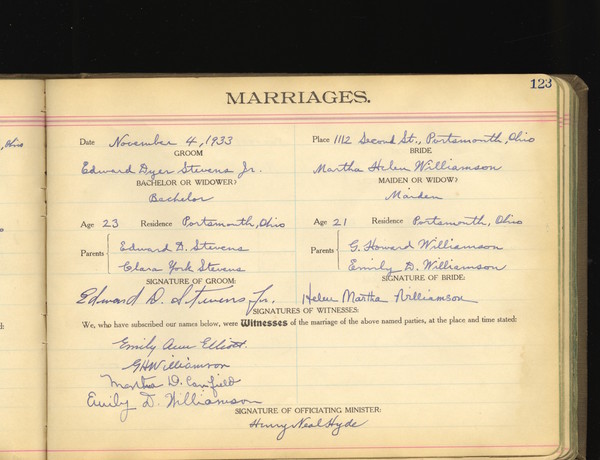 123
MARRIAGES.
Date November 4, 1933 Place 1112 Second St., Portsmouth, Ohio
GROOM BRIDE
Edward Dyer Stevens Jr. Martha Helen Williamson
BACHELOR OR WIDOWER? MAIDEN OR WIDOW?
Bachelor Maiden
Age 23 Residence Portsmouth, Ohio Age 21 Residence Portsmouth, Ohio
Parents Edward D. Stevens Parents G. Howard Williamson
Clara York Stevens Emily D. Williamson
SIGNATURE OF GROOM: SIGNATURE OF BRIDE:
Edward D. Stevens, Jr. Helen Martha Williamson
SIGNATURES OF WITNESSES:
We, who have subscribed our names below, were Witnesses of the marriage of the above named parties, at the place and time stated:
Emily Ann Elliott
GHWilliamson
Martha D. Canfield
Emily D. Williamson
SIGNATURE OF OFFICIATING MINISTER:
Henry Neal Hyde